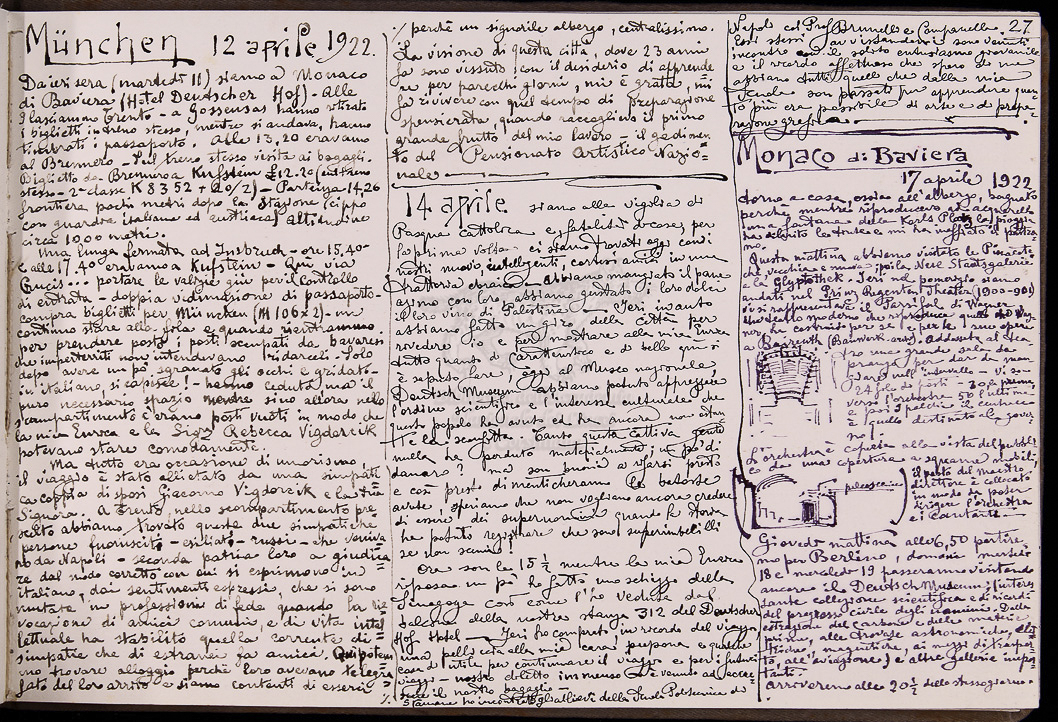 München 12 aprile 1922.
Da ieri sera (martedì 11) siamo a Monaco
di Baviera (Hotel Deutscher Hof) - Alle
9 lasciammo Trento - a Gossensas hanno vistato
i biglietti in treno stesso, mentre si andava, hanno
timbrati i passaporti. Alle 13,20 eravamo
al Brennero - Sul treno stesso visita ai bagagli.
Biglietto da Brennero a Kufstein £12.20 (sul treno
stesso - 2ª classe K 8352 + 20/2) - Partenza 14,26
frontiera pochi metri dopo la Stazione (cippo
con guardia italiana ed austriaca) altitudine
circa 1000 metri.
Una lunga fermata ad Insbruck - ore 15,40 -
e alle 17,40 eravamo a Kufstein - Qui via
Crucis... portare le valigie giù per il controllo
di entrata - doppia vidimazione di passaporto -
compra biglietti per München (M 106x2) - un
continuo stare alla fola e quando rientrammo
per prendere posto i posti occupati da bavaresi
che imperterriti non intendevano ridarceli. Solo
dopo avere un pò sgranato gli occhi e gridato -
in italiano, si capisce! - hanno ceduto, ma il
puro necessario spazio mentre sino allora nello
scompartimento c'erano posti vuoti in modo che
la mia Enrica e la Sigra Rebecca Vigdorcik
potevano stare comodamente.
Ma tutto era occasione di umorismo
il viaggio è stato allietato da una simpati
ca coppia di sposi Giacomo Vigdorcik e la sua
Signora. A Trento, nello scompartimento pre
scelto abbiamo trovato queste due simpatiche
persone fuorusciti - esiliati - russi - che veniva
no da Napoli - seconda patria loro a giudica
re dal modo corretto con cui si esprimono in
italiano, dai sentimenti espressi, che si sono
mutate in professioni di fede quando la rie
vocazione di amici comuni, e di vita intel
lettuale ha stabilito quella corrente di
simpatie che di estranei fa amici. Qui potem
mo trovare alloggio perchè loro avevano telegra
fato del loro arrivo e siamo contenti di esserci
./.
./. perchè un signorile albergo, centralissimo.
La visione di questa città, dove 23 anni
fa sono vissuto con il desiderio di apprende
re per parecchi giorni, mi è grata, mi
fa rivivere con quel tempo di preparazione
spensierata, quando raccoglievo il primo
grande frutto del mio lavoro - il godimen
to del Pensionato Artistico Nazio=
nale
14 aprile siamo alla vigilia di
Pasqua Cattolica e, fatalità di cose, per
la prima volta ci siamo trovati oggi con i
nostri nuovi, intelligenti, cortesi amici in una
trattoria ebraica - Abbiamo mangiato il pane
azimo con loro, abbiamo gustato i loro dolci
e loro vino di Palestina - Ieri in auto
abbiamo fatto un giro della città per
rivedere io e per mostrare alla mia Enrica
tutto quanto di caratteristico e di bello qui si
è saputo fare, oggi al Museo nazionale,
Deutsch Museum - abbiamo potuto apprezzare
l'ordine scientifico e l'interesse culturale che
questo popolo ha avuto ed ha ancora non ostan
te la sconfitta. Tanto questa cattiva gente
nulla ha perduto materialmente, un pò di
danaro? ma son bravi a rifarsi presto
e così presto dimenticheranno le batoste
avute, speriamo che non vogliano ancora credere
di essere dei superuomini quando la storia
ha potuto registrare che sono superimbecilli
se non scemi!
Ora son le 15 ½ mentre la mia Enrica
riposa un pò ho fatto uno schizzo della
Sinagoga così come l'ho veduta dal
balcone della nostra stanza 312 del Deutscher
Hof Hotel - Ieri ho comprato, in ricordo del viaggio
una pelliccetta alla mia cara pupona e qualche
cosa di utile per continuare il viaggio e per i futuri
viaggi - nostro diletto immenso - è venuto ad accre
scere il nostro bagaglio -
Stamane ho incontrato gli allievi della Scuola Politecnica di
27.
Napoli col Prof. Brunello e Campanella.
Essi stessi avvistandomi sono venuti
incontro con il solito entusiasmo giovanile
e il ricordo affettuoso che spero di me
abbiano tutti quelli che dalla mia
Scuola son passati per apprendere quan
to più era possibile di arte e di prepa
razione grafica.
Monaco di Baviera
17 aprile 1922
torno a casa, ossia all'albergo, bagnato
perchè mentre riproducevo ad acquarello
una fontana della Karls Platz la pioggia
mo.
Questa mattina abbiamo visitato le Pinacote
che, vecchia e nuova; poi la Neue Staatsgalerie
e la Glyptothek - Ieri nel pomeriggio siamo
andati nel Prinz Regenten Theater (1900-901)
vi si rappresentava il Parsifal di Wagner -
Un teatro moderno che riproduce quello che Wag
ner ha costruito per se e per le sue opere
a Bayreuth. Addossato al tea
tro una grande sala da
pranzo per dar da man
giare nell'intervallo - Vi so=
no
L'orchestra è coperta alla vista del pubbli
co da una copertura a squame mobili,
il posto del maestro
direttore è collocato
in modo da poter
dirigere l'orchestra
e i cantanti.
palcoscenico
Giovedì mattina alle 6,50 partire
mo per Berlino, domani martedì
18 e mercoledì 19 passeranno visitando
ancora il Deutsch Museum; (interes
sante collezione scientifica e di ricordi
del progresso civile degli uomini. Dalla
estrazione del carbone e delle materie
prime, alle trovate astronomiche, elet
triche, magnetiche, ai mezzi di traspor
to, all'aviazione) e altre gallerie impor
tanti.
Arriveremo alle 20 ½ dello stesso giorno.